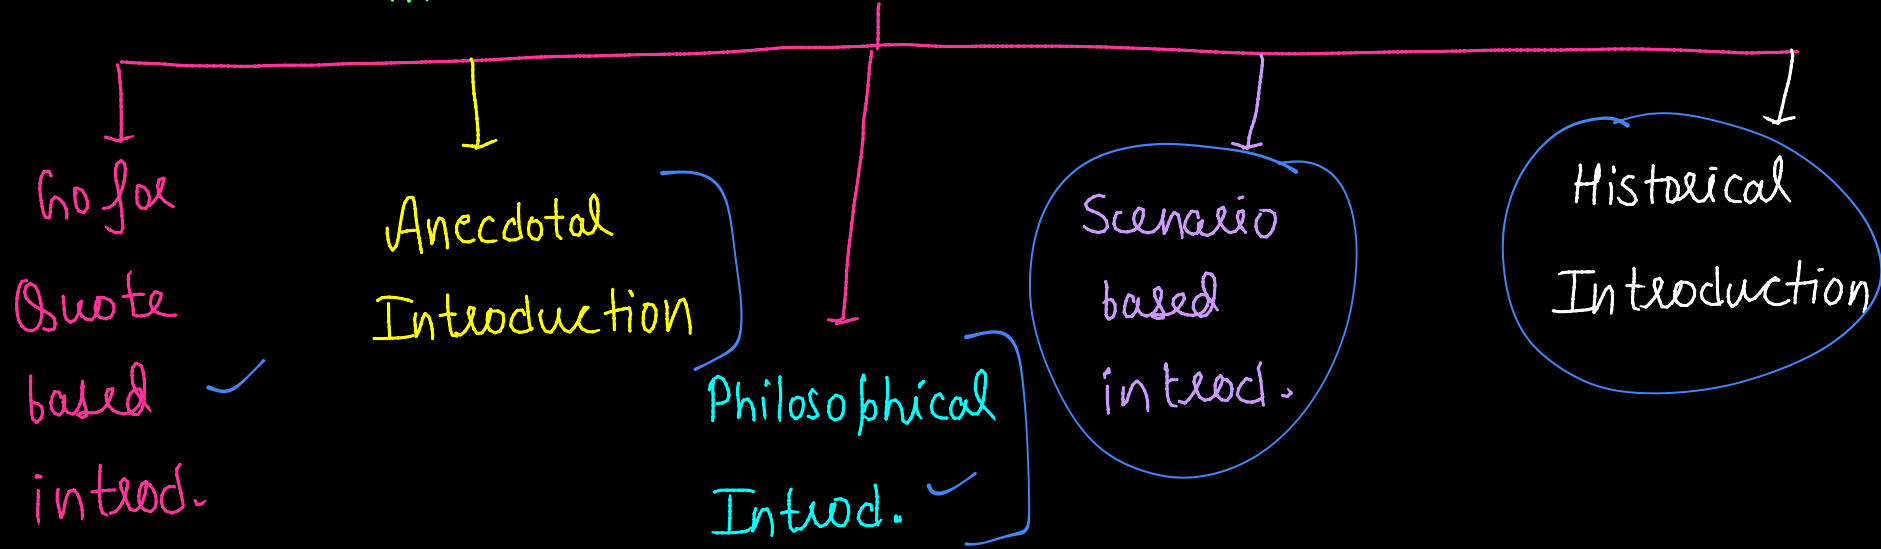 Go for
Quote
based
introd.
Anecdotal
Introduction
Philosophical
Introd.
Scenario
based
introd.
Historical
Introduction